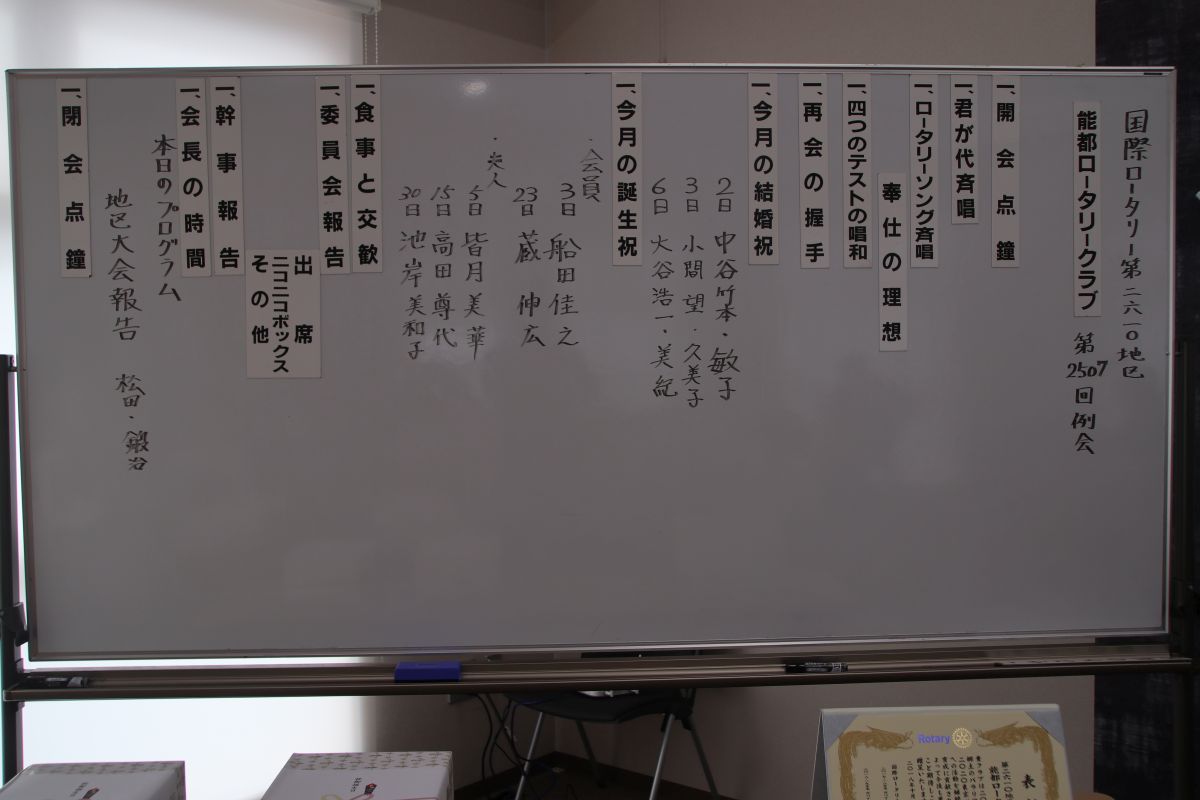 国際ロータリー第二六一〇地区
能都ロータリークラブ 第2507回例会
一、開会点鐘
一、君が代斉唱
一、ロータリーソング斉唱
奉仕の理想
一、四つのテストの唱和
一、再会の握手
一、今月の結婚祝
2日 中谷竹本・敏子
3日 小間 望・久美子
6日 大谷浩一・美紀
一、今月の誕生祝
・会員
3日 船田佳之
23日 蔵 伸広
・夫人
5日 皆月美華
15日 高田尊代
30日 池岸美和子
一、食事と交歓
一、委員会報告
出席
ニコニコボックス
その他
一、幹事報告
一、会長の時間
本日のプログラム
地区大会報告 松田・鍛治
一、閉会点鐘
Rotary
表